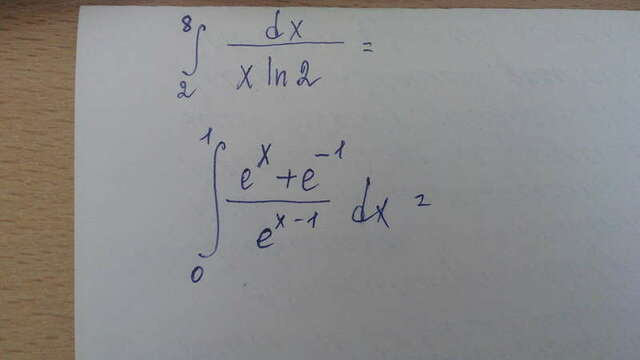 ∫₂⁸ dx / (x ln 2) =
∫₀¹ (eˣ + e⁻¹) / eˣ⁻¹ dx =